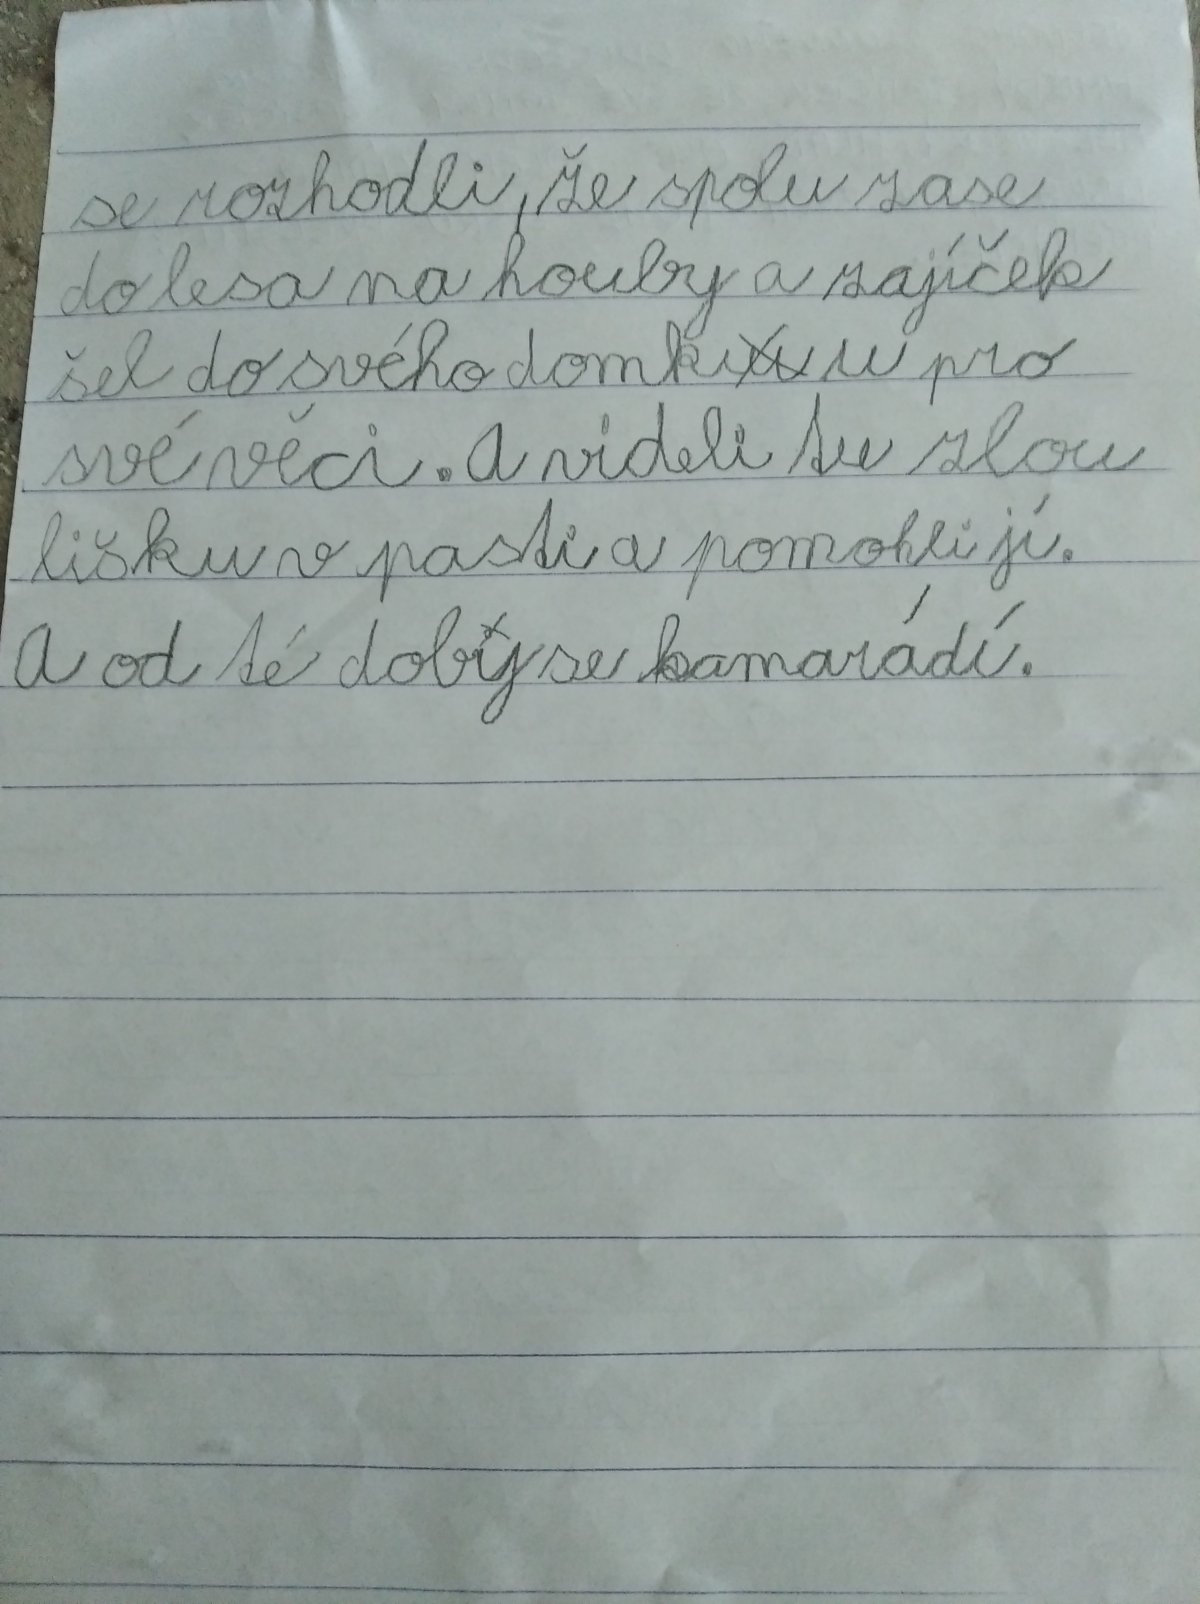 se rozhodli, že spolu zase
do lesa na houby a zajíček
šel do svého domku pro
své věci. A videli tu zlou
lišku v pasti a pomohli jí.
A od té doby se kamarádí.